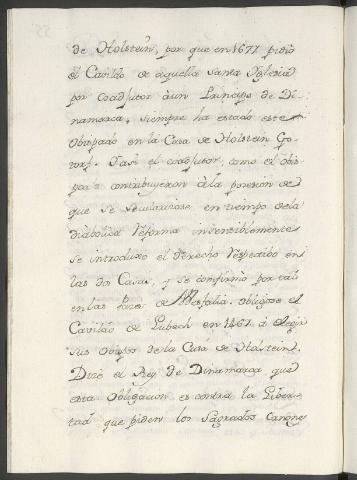 de Holstein, por que en 1677 pidio
el Cavildo de aquella Santa Yglesia
por Coadjutor àun Principe de Di-
namarca, siempre ha estado este
Obispado en la Casa de Holstein Go-
torp. Y asi el coadjutor, como el obis-
po contribuyeron àla posesion de
que se secularizase en tiempo dela
diabolica reforma insensiblemente
se introduxo el derecho respectibo en
las dos Casas, y se confirmò por tal
en las pazes de Wesfalia. Obligose el
Cavildo de Lubech en 1467 à elegir
sus Obispos dela Casa de Holstein.
Dice el Rey de Dinamarca que
esta Obligacion es contra la Liber-
tad que piden los Sagrados Canones